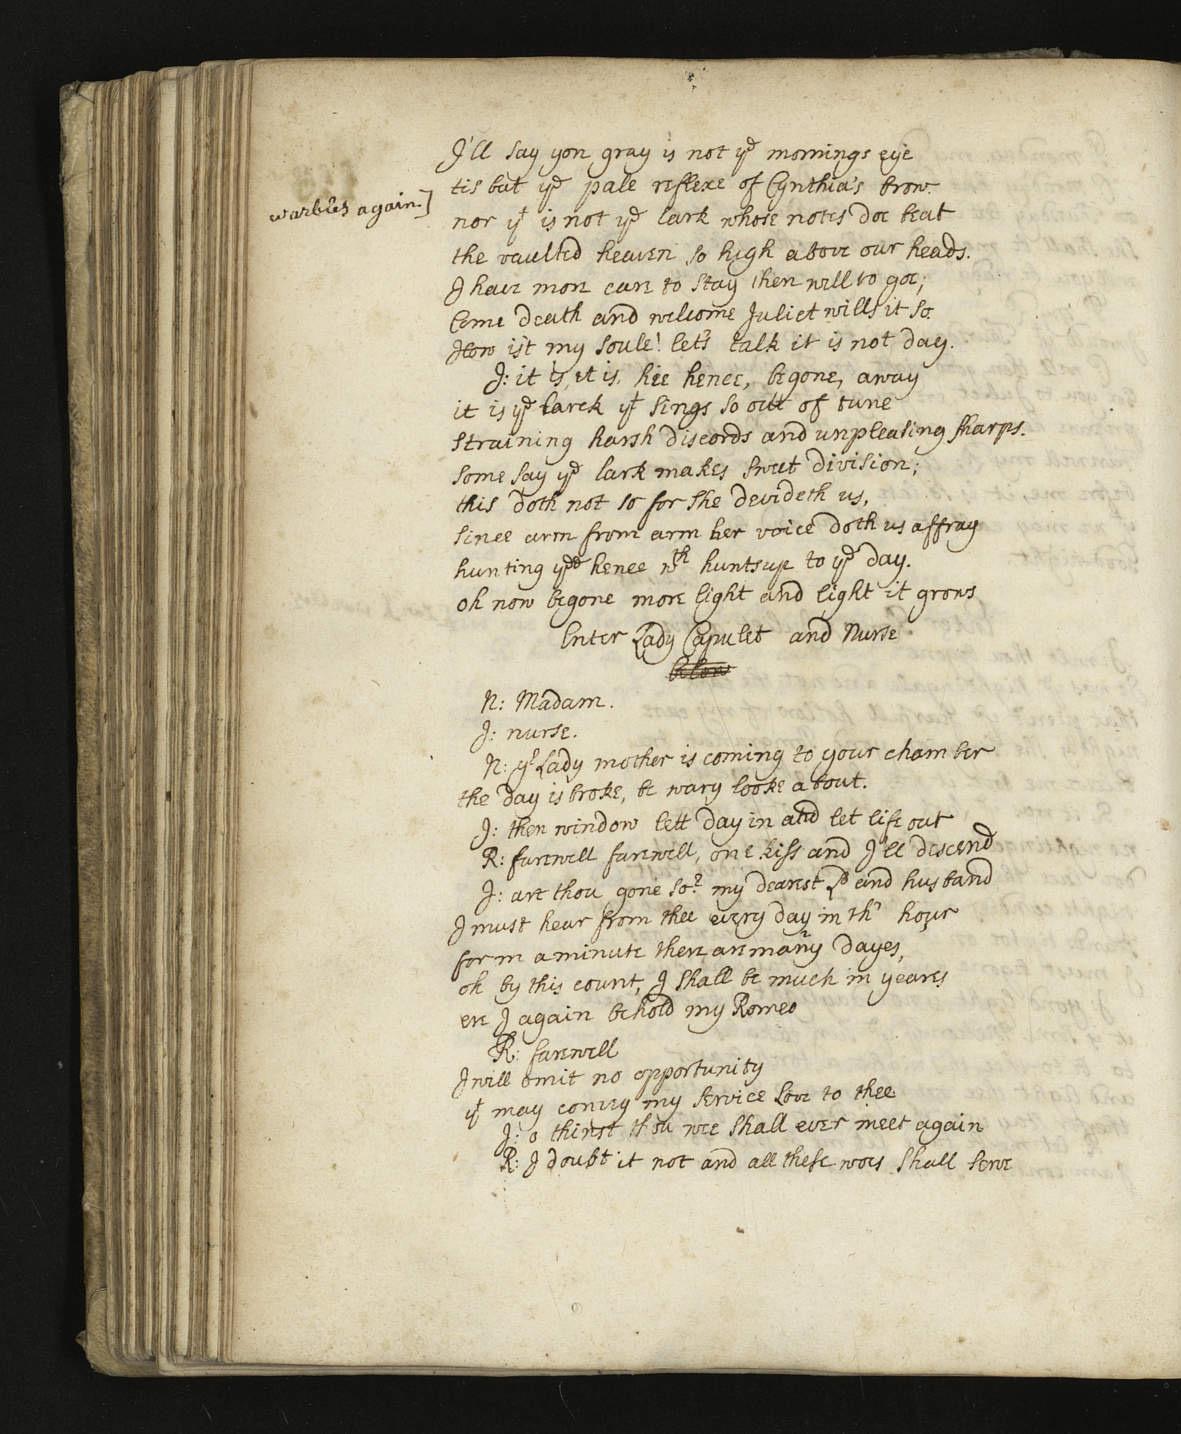 I'll say yon gray is not yᵉ mornings eye
tis but yᵉ pale reflexe of Cynthia's brow.
warbles again.]
nor yᵗ is not yᵉ lark whose notes doe beat
the vaulted heaven so high above our heads.
I have more care to stay then will to goe;
Come death and welcome Juliet wills it so.
How ist my soule! let's talk it is not day.
J: it is, it is, hie hence, begone, away
it is yᵉ larck yᵗ sings so out of tune
straining harsh discords and unpleasing sharps.
some say yᵉ lark makes sweet division;
this doth not so for she devideth us,
since arm from arm her voice doth us affray
hunting yᵉᵉ hence wᵗʰ huntsup to yᵉ day.
oh now begone more light and light it grows
Enter Lady Capulet and Nurse
N: Madam.
J: nurse.
N: yʳ Lady mother is coming to your chamber
the day is broke, be wary looke about.
J: then window lett day in and let life out
R: farewell farewell, one kiss and I'll descend
J: art thou gone so? my dearest Lᵈ and husband
I must hear from thee every day in thʳ hour
for in a minute there are many dayes,
oh by this count, I shall be much in yeares
ere I again behold my Romeo
R: farewell
I will omit no opportunity
yᵗ may convey my service love to thee
J: o thinst thou wee shall ever meet again
R: I doubt it not and all these woes shall serve